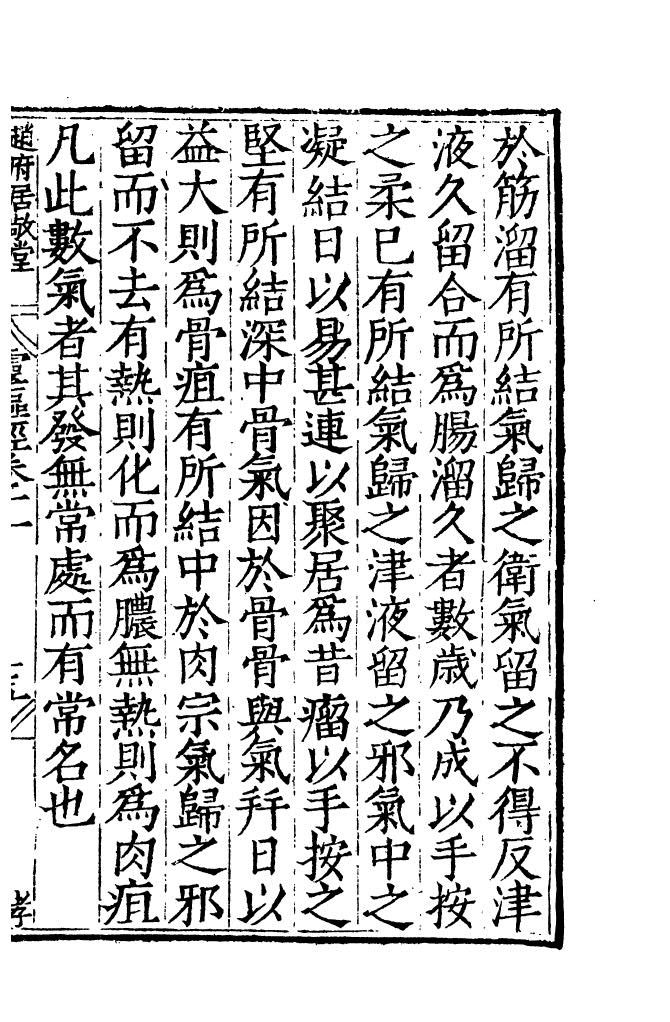 於筋溜有所結氣歸之衛氣留之不得反津
液久留合而爲腸溜久者數歲乃成以手按
之柔已有所結氣歸之津液留之邪氣中之
凝結日以易甚連以聚居爲昔瘤以手按之
堅有所結深中骨氣因於骨骨與氣并日以
益大則爲骨疽有所結中於肉宗氣歸之邪
留而不去有熱則化而爲膿無熱則爲肉疽
凡此數氣者其發無常處而有常名也
趙府居敬堂
靈樞經卷十一
孝